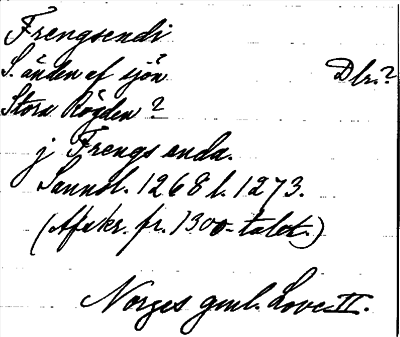 Frengsendi
S. änden af sjön Dlr.?
Stora Rögden?
j Frengs enda.
Sannol. 1268 l. 1273.
(Afskr. fr. 1300-talet.)
Norges gml. Love II.